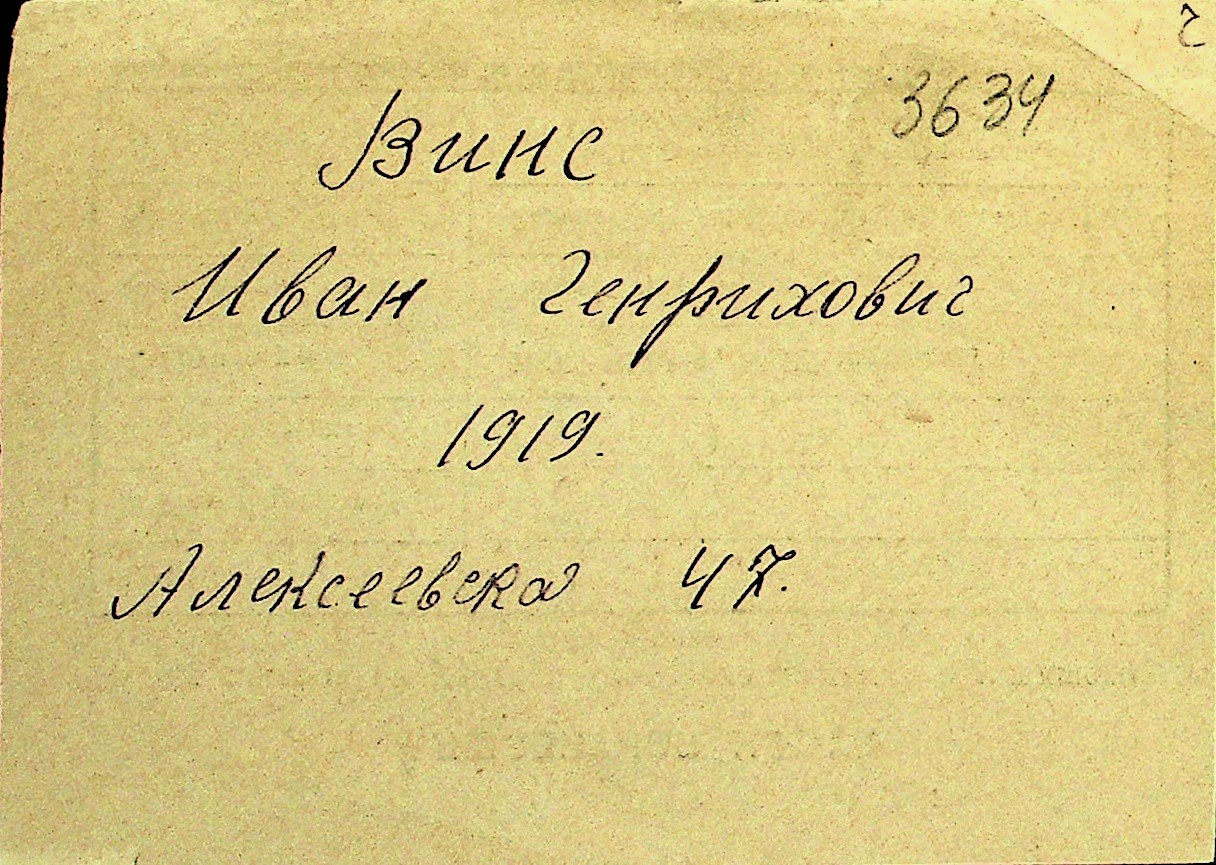 3634
Винс
Иван Генрихович
1919.
Алексеевска 47.